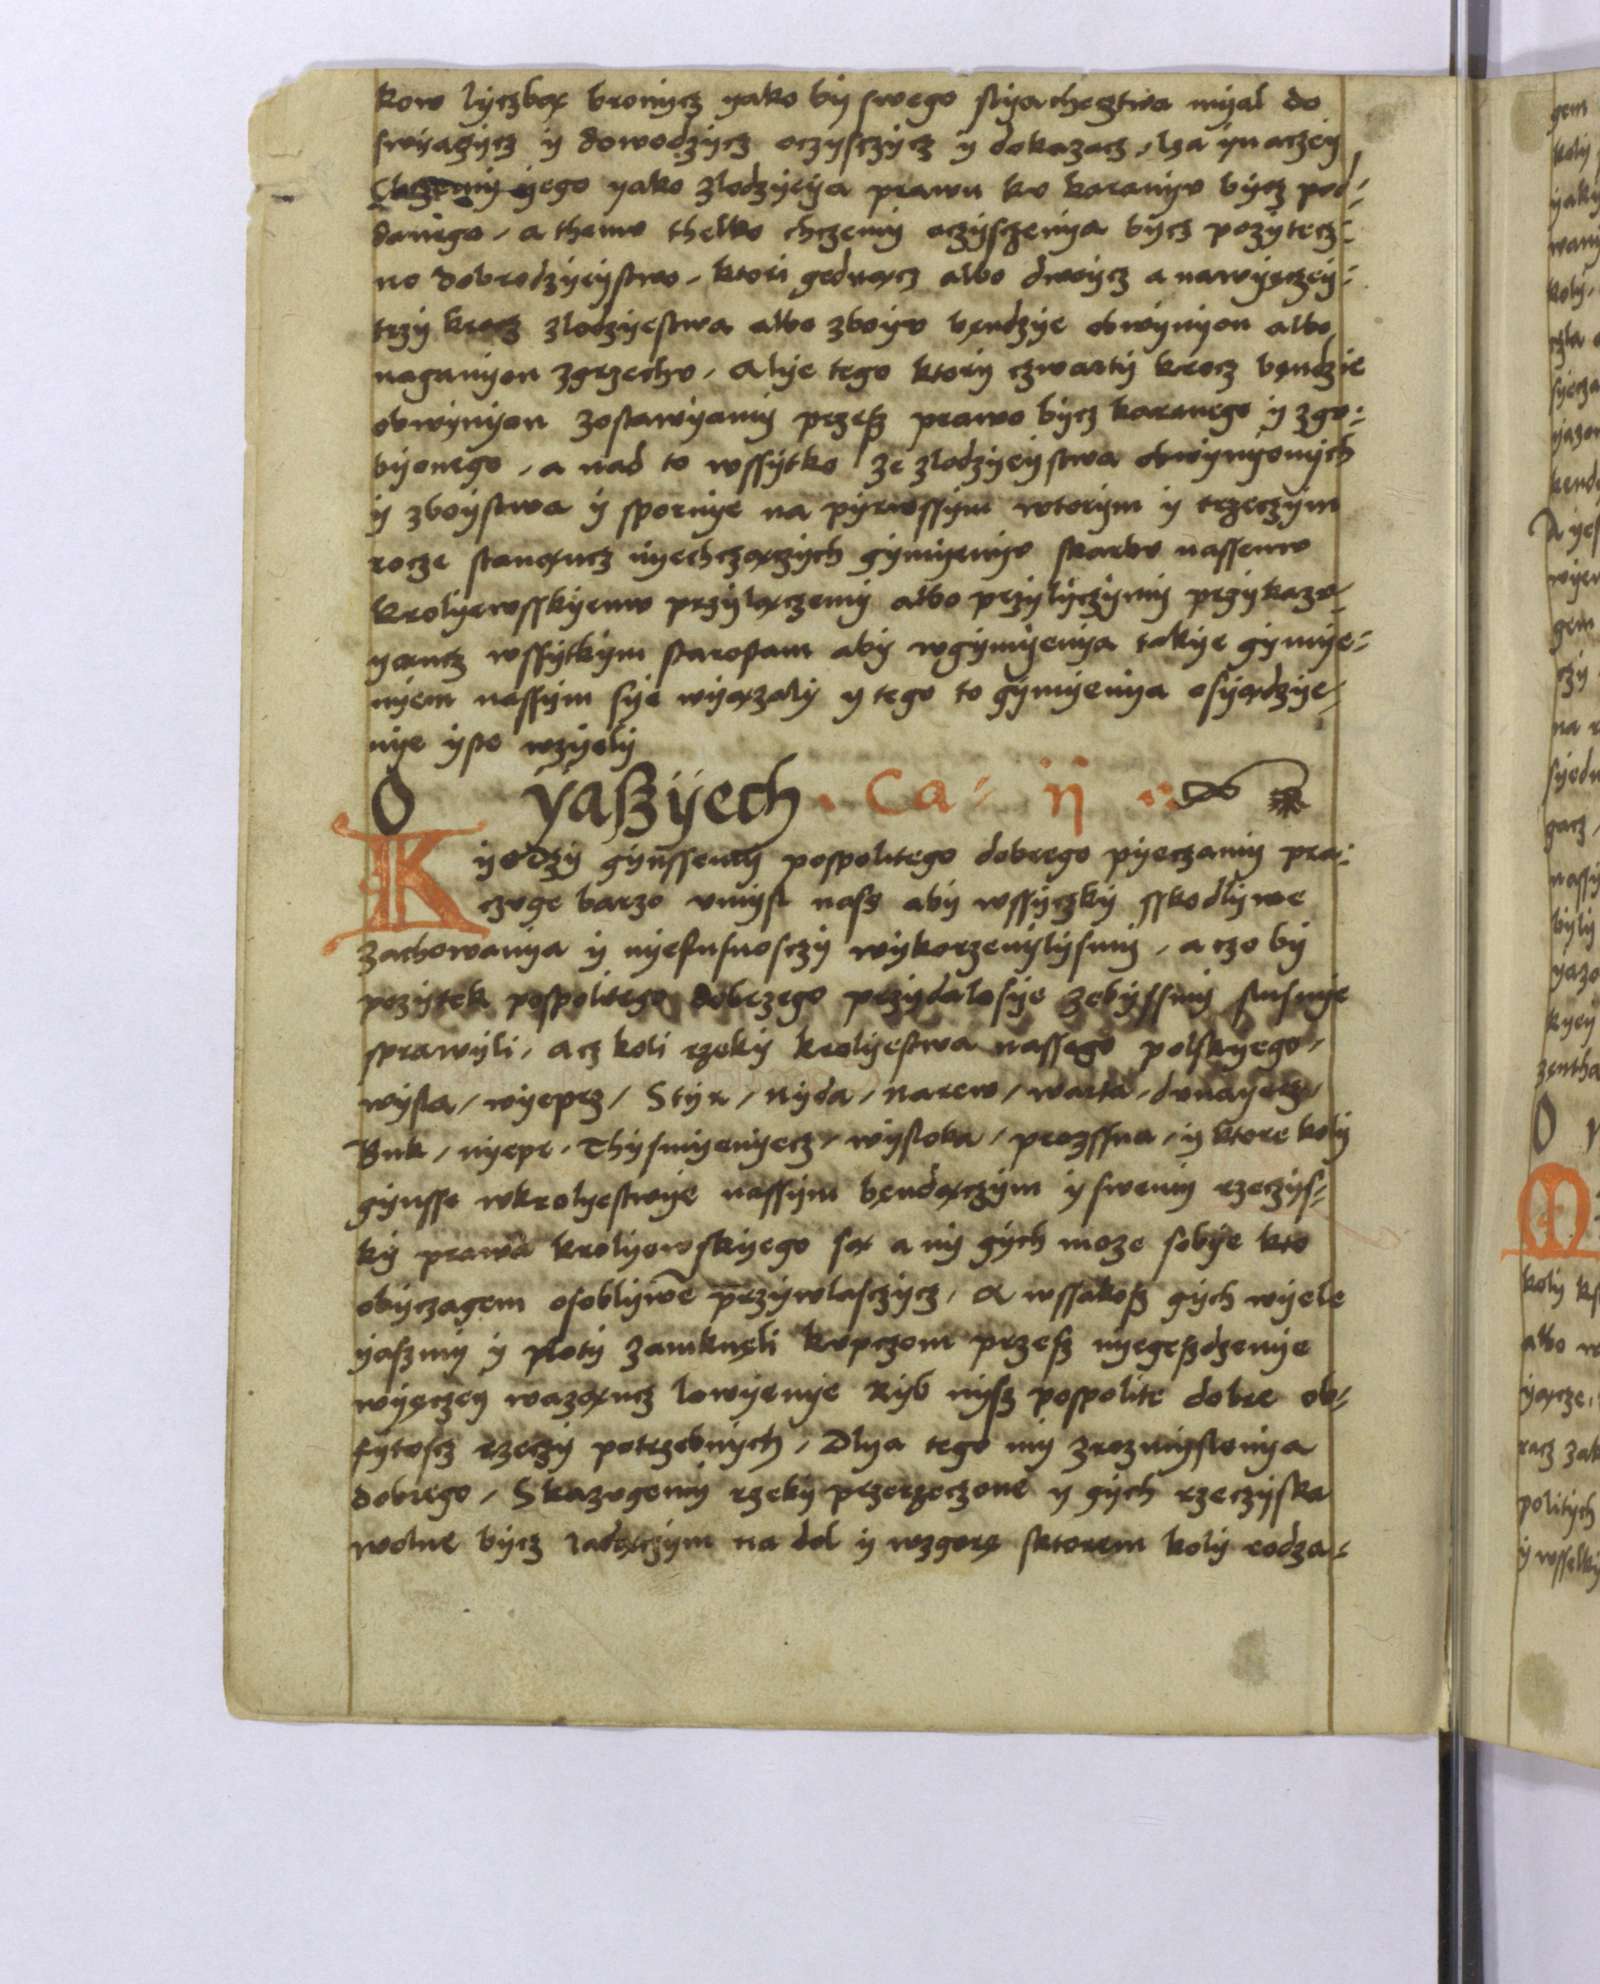 kow lyczbą bronycz yako by swego slyachecztwa myal do
swyaczycz y dowodzycz oczysczycz y dokazacz, lza ynaczey
Chczemy yego yako zlodzyeya prawu ku karanyu bycz pod-
danego, a themu thelko chczemy oczysczenya bycz pozytecz-
no dobrodzyeystwo, ktori gednącz albo dwoycz a nawyęczey
trzy krocz zlodzyestwa albo zboyu będzye obwynyon albo
naganyon zgrzechu, Alye tego ktory czwarty krocz będzie
obwynyon zostawyamy przesz prawo bycz karanego y zgu-
byonego, a nad to wssytko ze zlodzyeystwa obwynyonych
y zboystwa y spornye na pyrwssym wtorym y trzeczym
rocze stanąncz nyechczączych gymyenyu skarbu nassemu
krolyewsskyemu przylączemy albo przylyczymy przykazu-
yąncz wssytkym starostam aby wgymyenya takye gymye-
nyem nassym sye wyązaly y tego to gymyenya osyądzye-
nye yste wzyely
O yaszyech . Ca ij
Kyedzy gynssemy pospolitego dobrego pyeczamy pra-
czuge barzo umysl nasz aby wssyczky sskodlywe
zachowanya y nyeslusnosczy wykorzenylysmy, a czo by
pozytek pospolitego dobrzego przydalosye zebyssmy slusnye
sprawyli, acz koli rzeky krolyestwa nassego polskyego,
wysla, wyeprz, Styr, nyda, narew, warta, dunayecz,
Buk, nyepr, Thysmyenyecz, wysloka, prozssna, y ktore koly
gynsse wkrolyestwye nassym będączym y swemy rzeczys-
ky prawa krolyewskyego są a ny gych moze sobye kto
obyczagem osoblywe przywlasczycz, A wssakosz gych wyele
yaszmy y ploty zamknęli kupczom przesz nyegeszdzenye
wyęczey waząncz lowyenye Ryb nysz pospolite dobre ob-
fytoscz rzeczy potrzebnych, Dlya tego my zrozmyslenya
dobrego, Skazugemy rzeky przerzeczone y gych rzeczyska
wolne bycz iadączym na dol y wzgorę sktorem koly rodza-